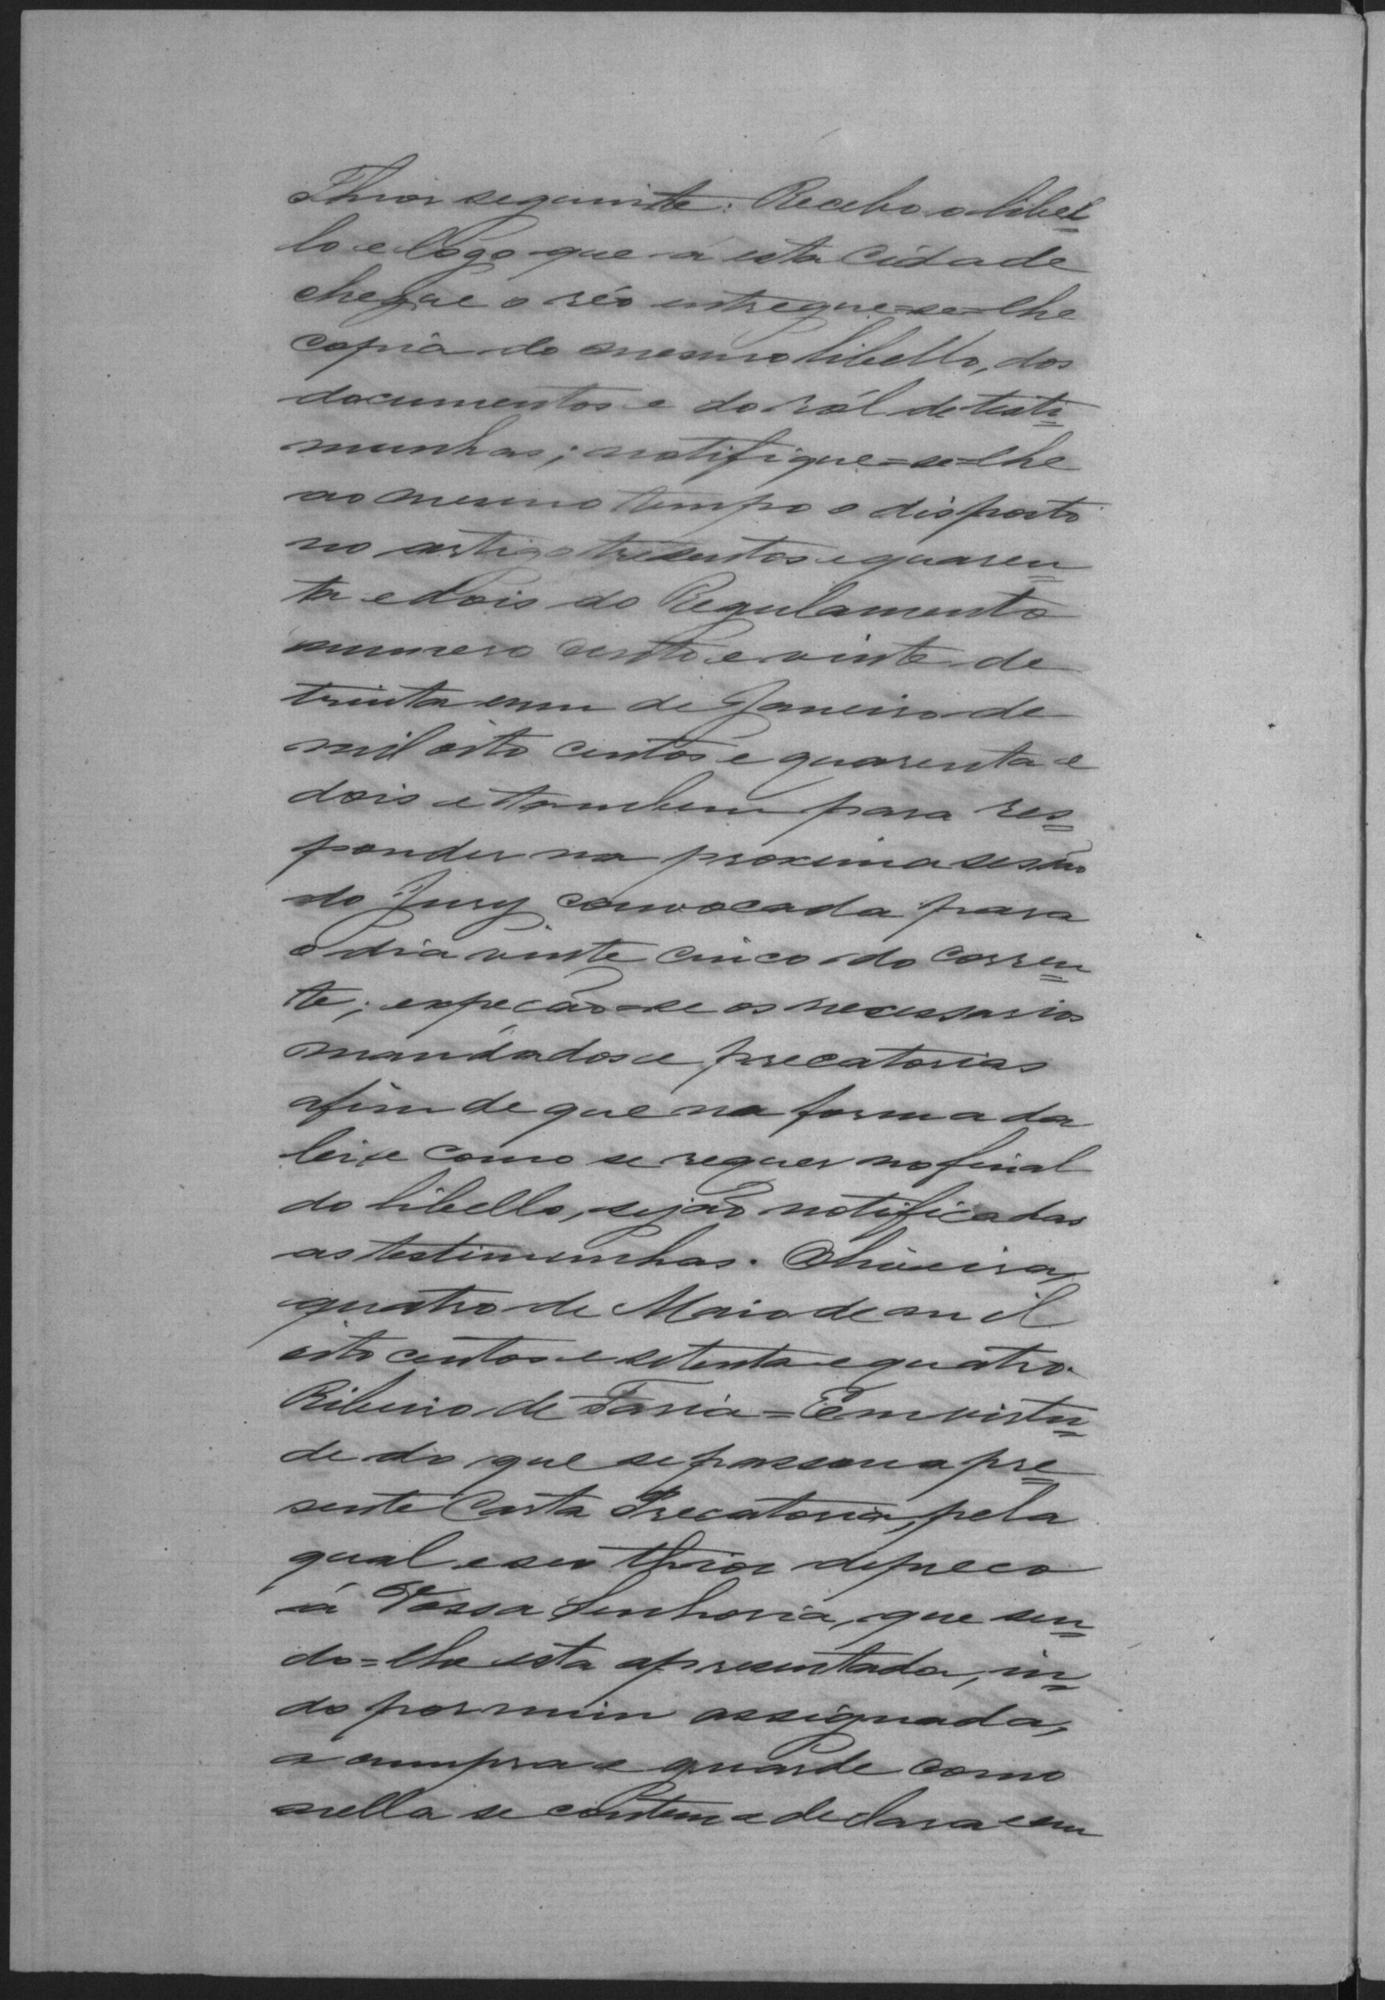 Theor seguinte: Recebo o libel=
lo e logo que á esta Cidade
chegue o réo entregue=se=lhe
copia do mesmo libello, dos
documentos e do ról de teste=
munhas; notifique=se=lhe
ao mesmo tempo o disposto
no artigo tresentos e quaren=
ta e dois do Regulamento
numero cento e vinte de
trinta e um de Janeiro de
mil oito centos e quarenta e
dois e tambem para res=
ponder na proxima sessão
do Jury convocada para
o dia vinte cinco do corren=
te; expeção=se os necessarios
mandados e precatorias
afim de que na forma da
lei e como se requer no final
do libello, sejão notificadas
as testimunhas. Oliveira,
quatro de Maio de mil
oito centos e setenta e quatro.
Ribeiro de Faria = Em virtu=
de do que se passou a pre=
sente Carta Precatoria, pela
qual e seu theor depreco
á Vossa Senhoria, que sen=
do=lhe esta apresentada, in=
do por mim assignada,
a cumpra e guarde como
nella se contem e declara e em